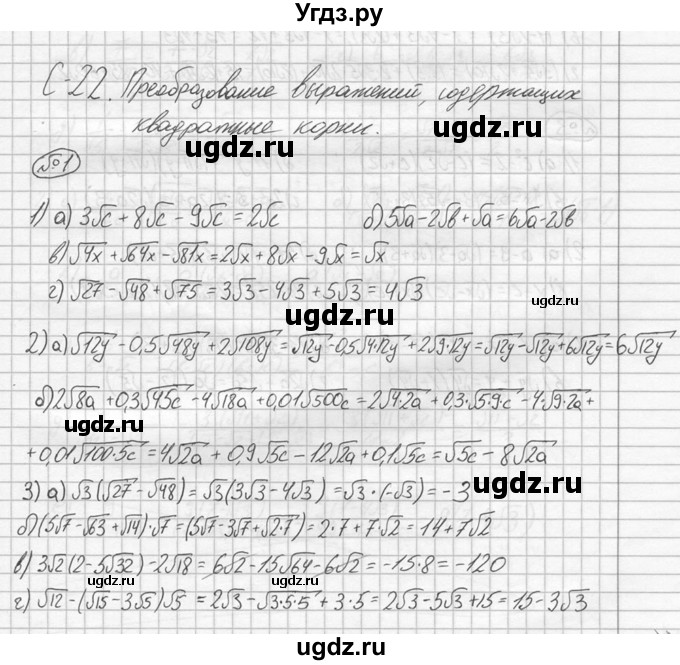 Угдз.ру
С-22. Преобразование выражений, содержащих
квадратные корни.
ugdz.ru ugdz.ru
№1
1) а) 3√c + 8√c - 9√c = 2√c б) 5√a - 2√b + √a = 6√a - 2√b
в) √4x + √64x - √81x = 2√x + 8√x - 9√x = √x
г) √27 - √48 + √75 = 3√3 - 4√3 + 5√3 = 4√3
ugdz.ru
2) а) √12y - 0,5√48y + 2√108y = √12y - 0,5√4·12y + 2√9·12y = √12y - √12y + 6√12y = 6√12y
ugdz.ru ugdz.ru
б) 2√8a + 0,3√45c - 4√18a + 0,01√500c = 2√4·2a + 0,3·√5·9c - 4√9·2a +
+ 0,01√100·5c = 4√2a + 0,9√5c - 12√2a + 0,1√5c = √5c - 8√2a
3) а) √3(√27 - √48) = √3(3√3 - 4√3) = √3·(-√3) = -3
ugdz.ru
б) (5√7 - √63 + √14)·√7 = (5√7 - 3√7 + √2·7) = 2·7 + 7√2 = 14 + 7√2
в) 3√2(2 - 5√32) - 2√18 = 6√2 - 15√64 - 6√2 = -15·8 = -120
ugdz.ru ugdz.ru
г) √12 - (√15 - 3√5)√5 = 2√3 - √3·5·5 + 3·5 = 2√3 - 5√3 + 15 = 15 - 3√3
ugdz.ru